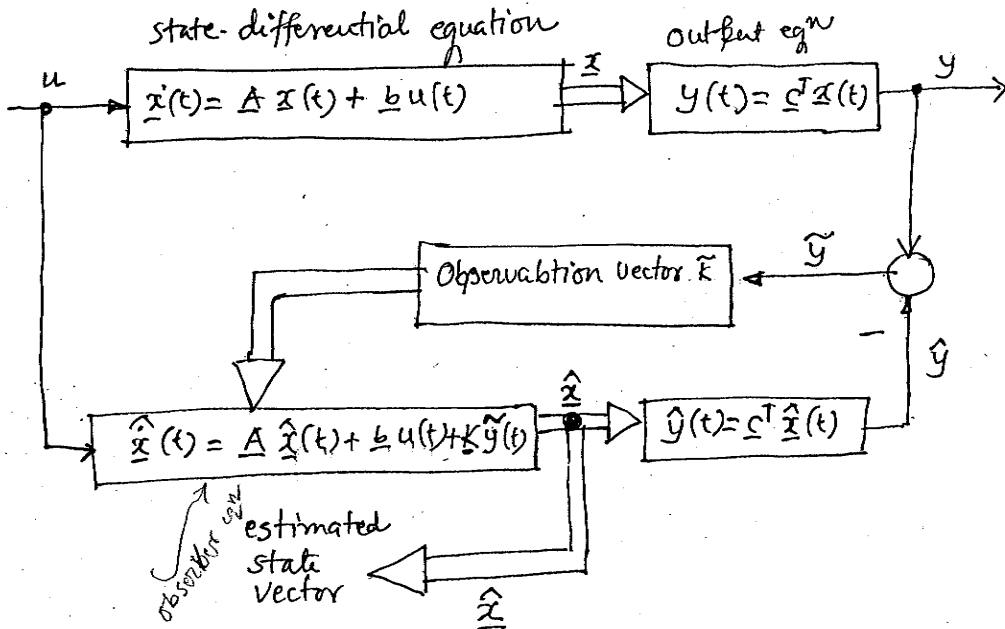 state-differential equation
output eqⁿ
u
ẋ(t) = A x(t) + b u(t)
x
y(t) = cᵀ x(t)
y
ỹ
Obserwabtion vector k̃
−
ŷ
x̂
x̂̇(t) = A x̂(t) + b u(t) + K ỹ(t)
ŷ(t) = cᵀ x̂(t)
observer eqⁿ
estimated
state
vector
x̂